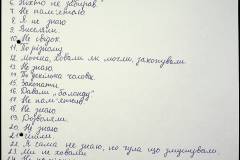 6. Ніхто не забирав
7. Не пам'ятаю
8. Я не знаю
9. Висилали.
10. Не свідок.
11. По різному
12. Можна, ховали як могли, закопували.
13. Не знаю.
14. По декілька чоловік.
15. Закопати.
16. Давали "баланду"
17. Не пам'ятаю
18. Не знаю
19. Дозволяли.
20. Не знаю
21.
22. Я сама не знаю, но чула що змушували
23. Ми не ховали